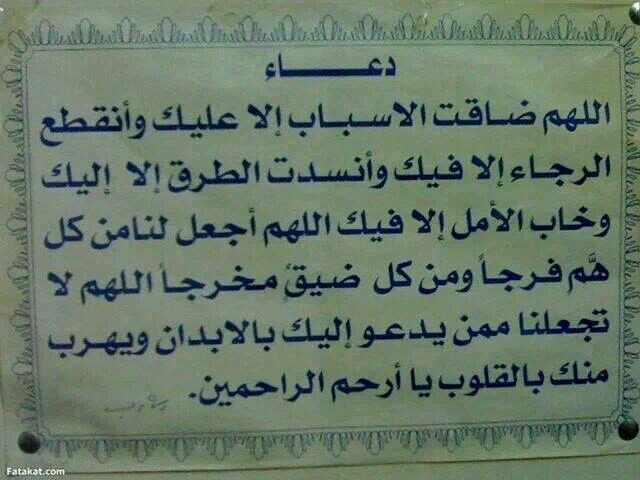 دعـــــاء
اللهم ضاقت الاسباب إلا عليك وأنقطع
الرجاء إلا فيك وأنسدت الطرق إلا إليك
وخاب الأمل إلا فيك اللهم أجعل لنا من كل
هَّمِ فرجاً ومن كل ضيقٍ مخرجاً اللهم لا
تجعلنا ممن يدعو إليك بالابدان ويهرب
منك بالقلوب يا أرحم الراحمين.
Fatakat.com